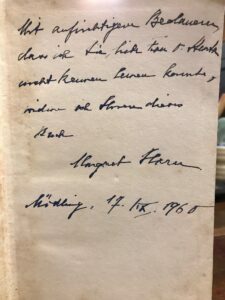 Mit aufrichtigem Bedauern,
dass ich Sie, liebe
nicht kennen lernen konnte,
widme ich Ihnen dieses
Buch
Margret
Mödling, 17. IX. 1960